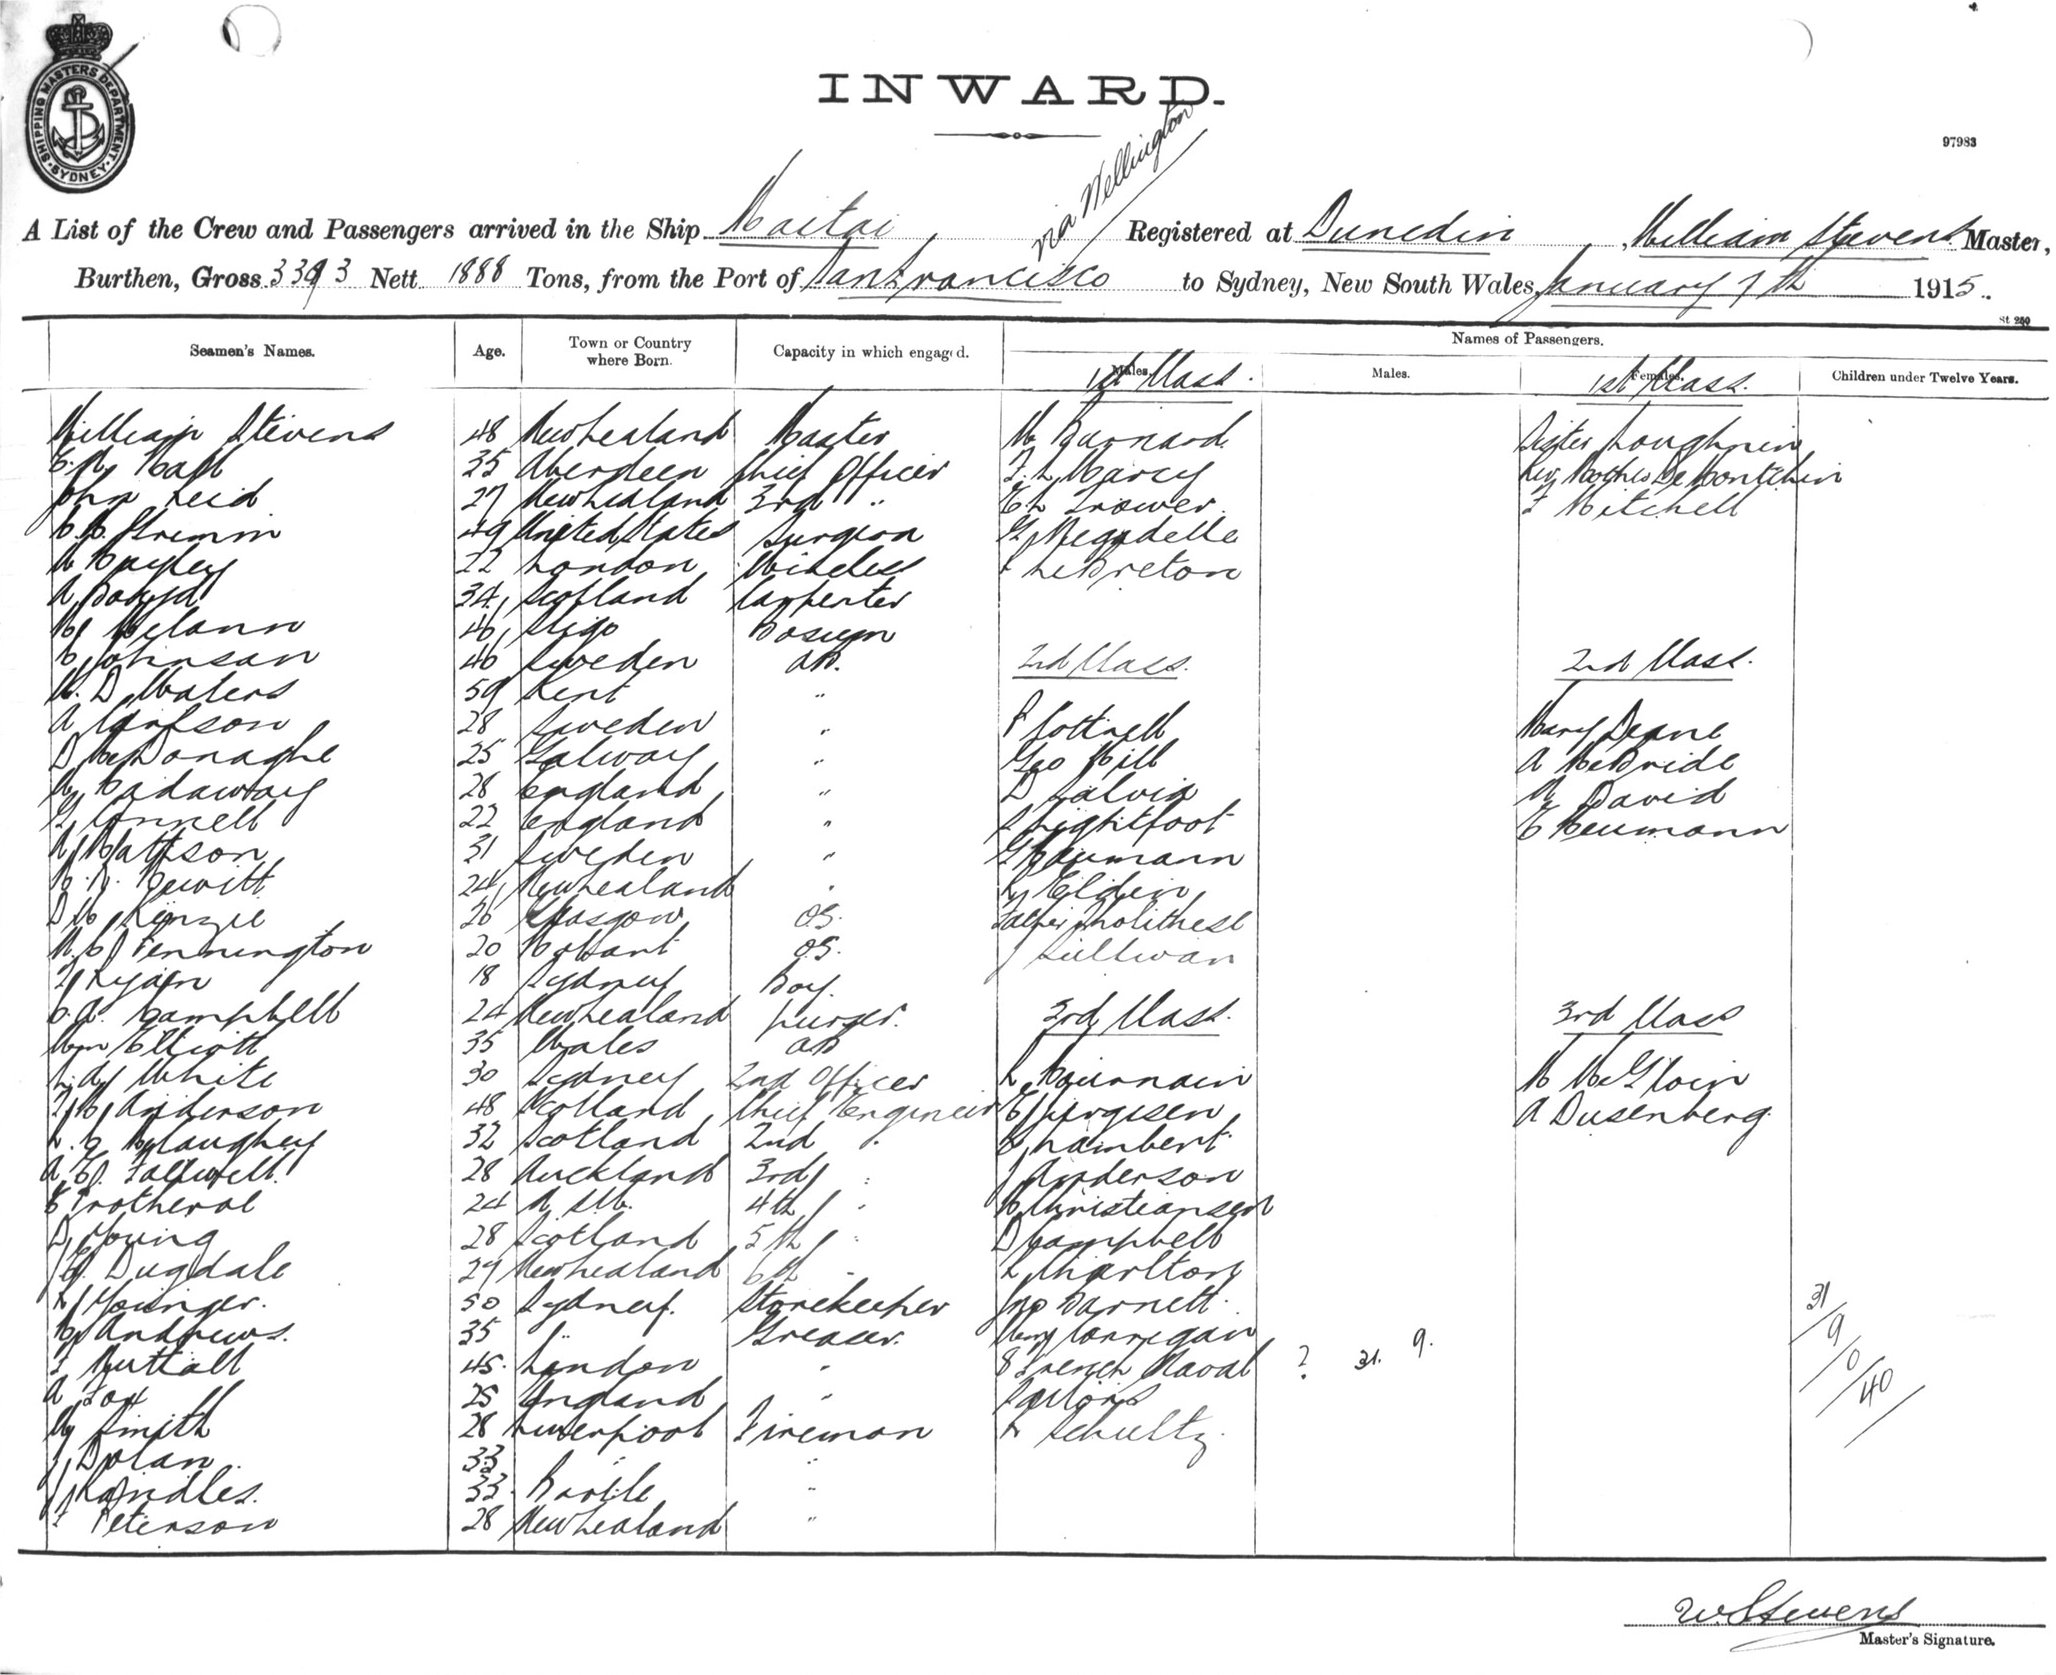 SHIPPING MASTERS DEPARTMENT. SYDNEY
INWARD.
97983
via Wellington
A List of the Crew and Passengers arrived in the Ship Maitai Registered at Dunedin, William Stevens Master,
Burthen, Gross 3393 Nett 1888 Tons, from the Port of San Francisco to Sydney, New South Wales, January 7th 1915.
St 250
Seamen's Names. Age. Town or Country where Born. Capacity in which engaged. Names of Passengers.
Males. Males. Females. Children under Twelve Years.
1st Class. 1st Class.
William Stevens 48 New Zealand Master M Barnard Sister Loughnin
35 Aberdeen Chief Officer F. L. Marcy Rev Mother De Montchin
John Reid 27 New Zealand 3rd " E L Trower F Mitchell
49 United States Surgeon
22 London Wireless LeBreton
34 Scotland Carpenter
46 Sligo Bosun
C Johnson 46 Sweden AB. 2nd Class. 2nd Class.
W. D. Waters 59 Kent "
28 Sweden " P Cottrell Mary Deane
D McDonaghe 25 Galway " Geo Hill A McBride
28 England " D Galvin A David
G Connell 22 England " Lightfoot E Neumann
A Mattson 31 Sweden " G Neumann
Hewitt 24 New Zealand "
D McKenzie 26 Glasgow OS. Father
Pennington 20 Hobart OS. J Sullivan
Ryan 18 Sydney Boy.
C. A. Campbell 24 New Zealand Purser. 3rd Class. 3rd Class
Wm Elliott 35 Wales AB
White 30 Sydney 2nd Officer M McGloin
Anderson 48 Scotland Chief Engineer E Jurgisen A Dusenberg.
32 Scotland 2nd " Lambert
28 Auckland 3rd " J Anderson
E Protheroe 24 N.S.W. 4th " Christiansen
D Young 28 Scotland 5th " D Campbell
Dugdale 29 New Zealand 6th " L Charlton
50 Sydney. Storekeeper Jno Barnett. 31
Andrews. 35 " Greaser. Corrigan 9
F Nuttall 45. London " 8 French Naval ? 31. 9. 0
A Fox 25 England " Sailors 40
Smith 28 Liverpool Fireman Schultz.
J Dolan 33 " "
J Randles. 33. "
Peterson 28 New Zealand "
W Stevens
Master's Signature.